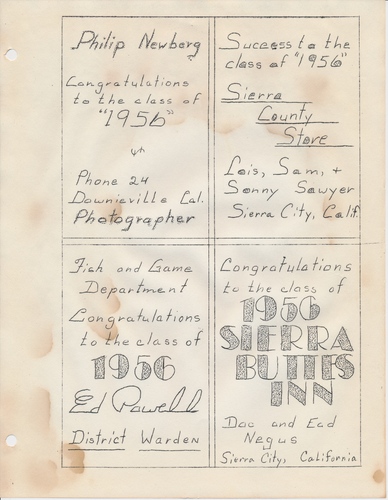 Philip Newberg
Congratulations
to the class of
"1956"
Phone 24
Downieville, Cal.
Photographer
Success to the
class of "1956"
Sierra
County
Store
Lois, Sam, +
Sonny Sawyer
Sierra City, Calif.
Fish and Game
Department
Congratulations
to the class of
1956
Ed Powell
District Warden
Congratulations
to the class of
1956
SIERRA
BUTTES
INN
Doc and Ead
Negus
Sierra City, California